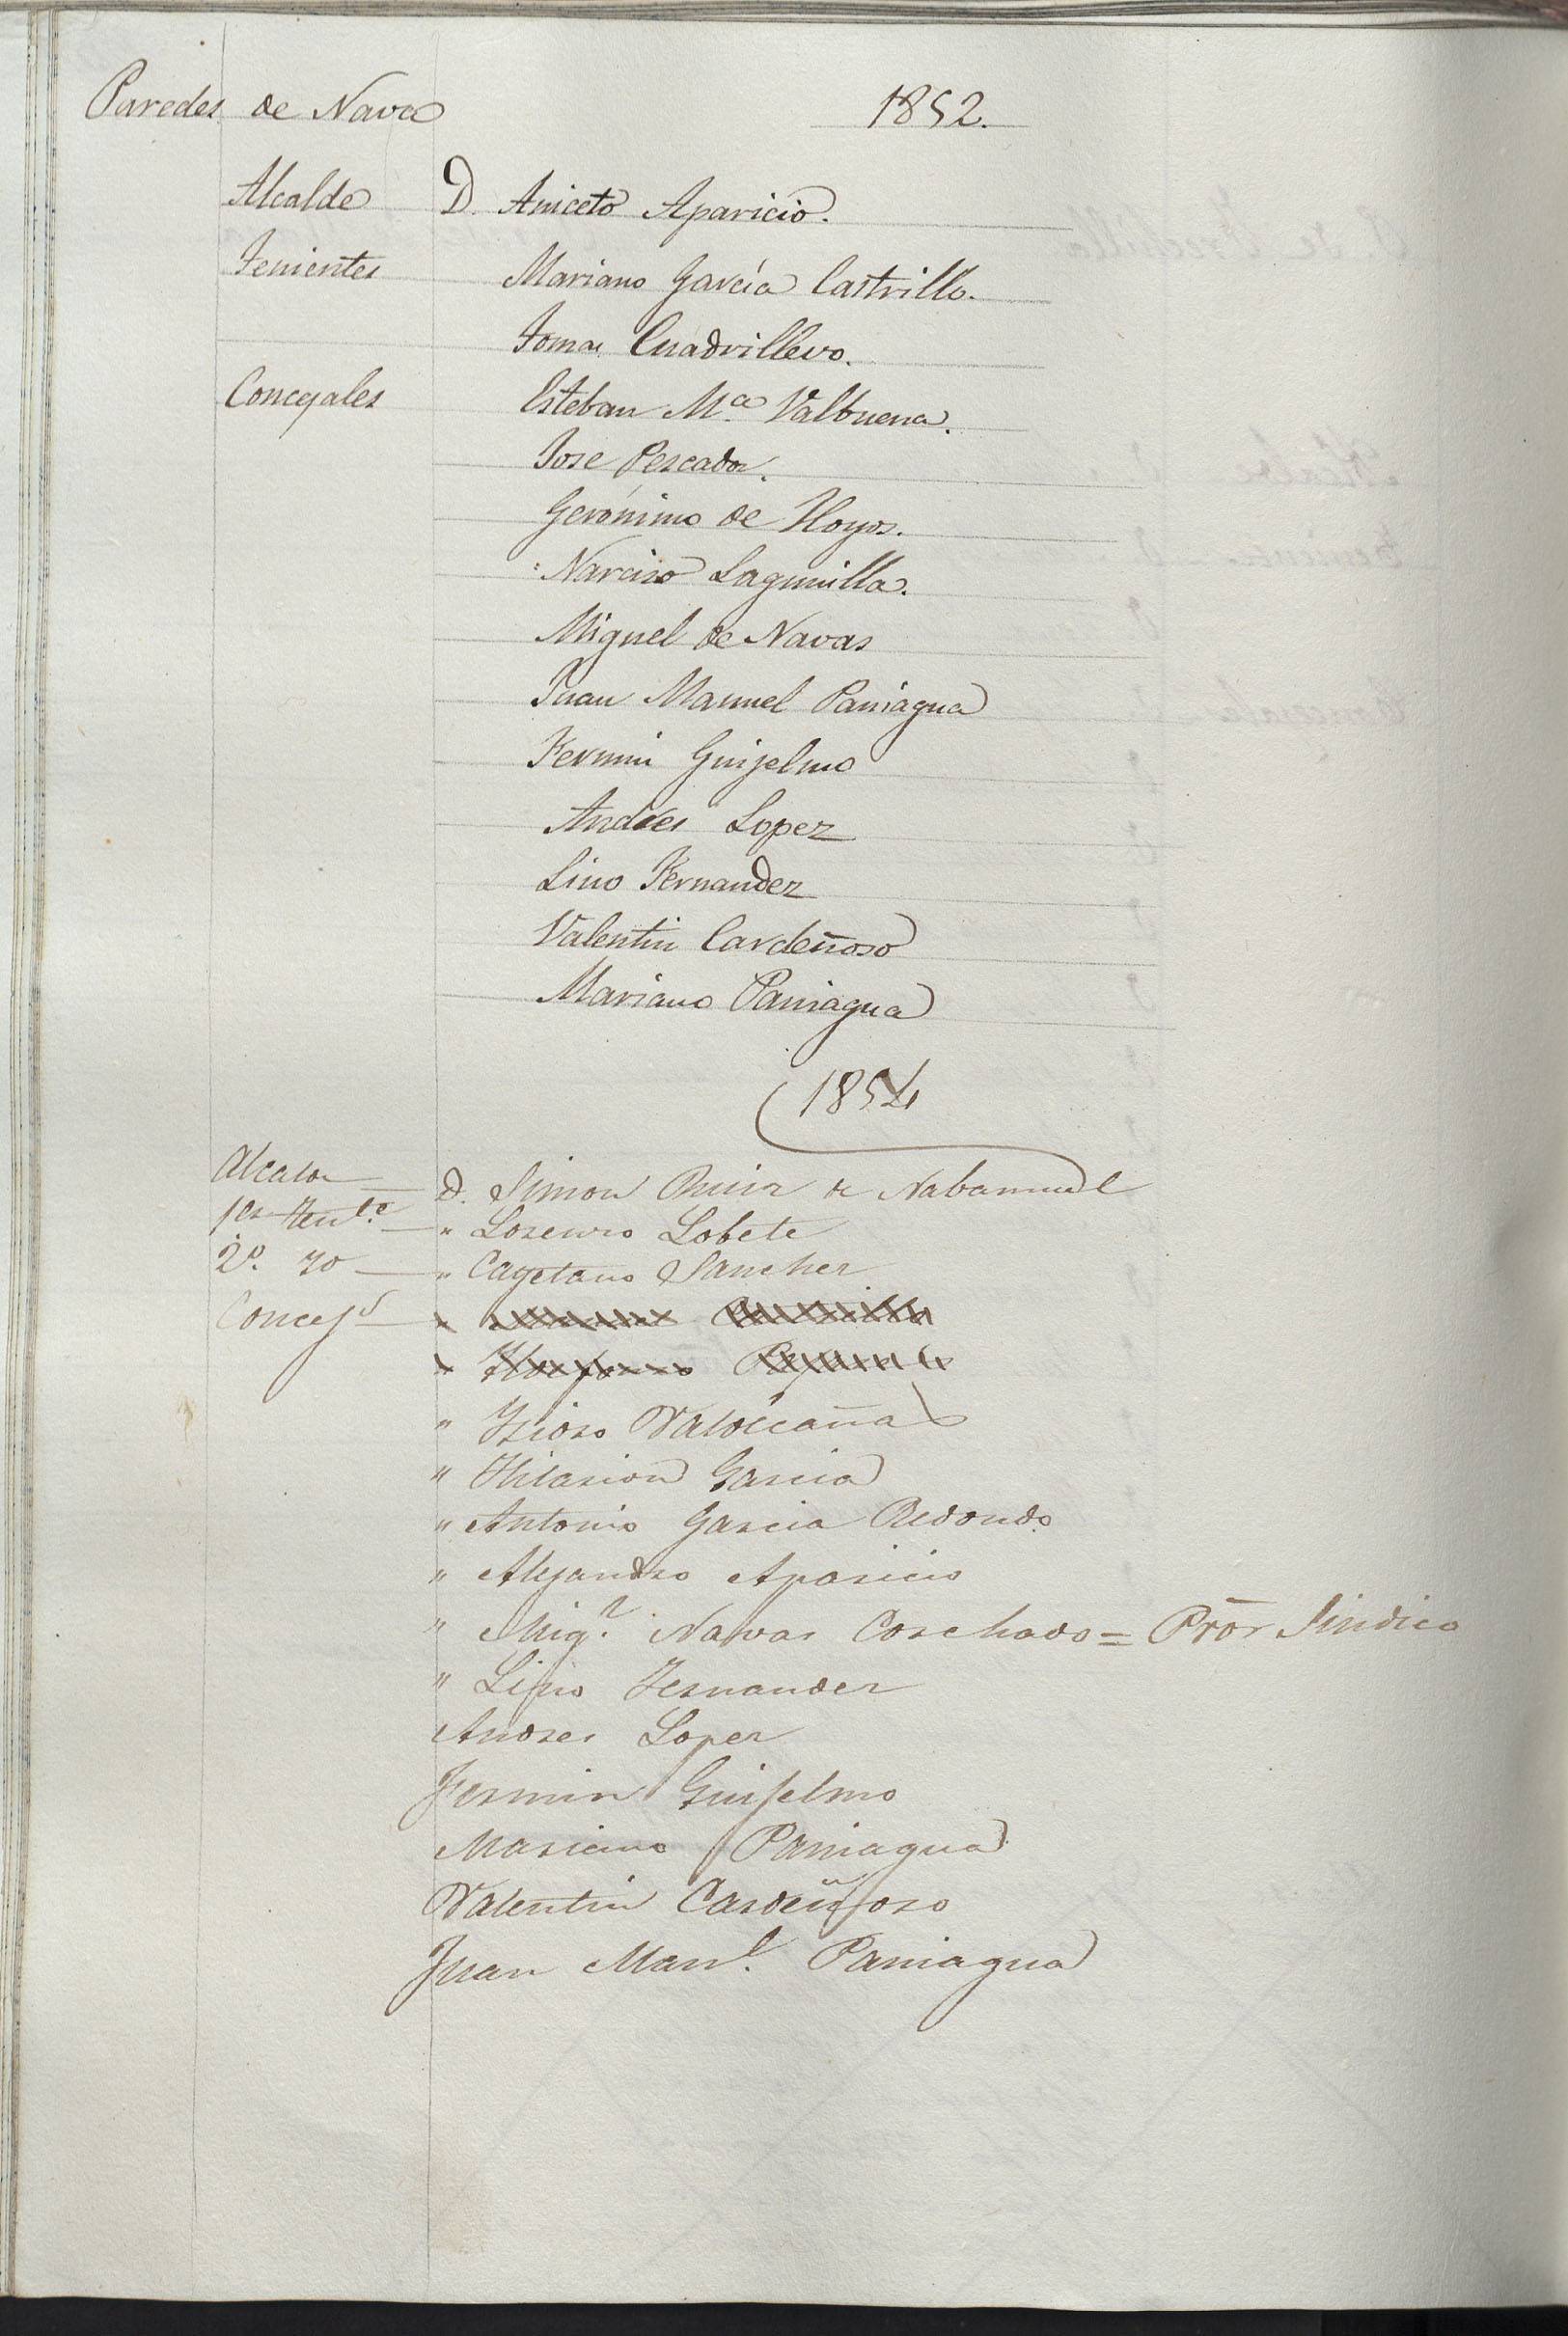 Paredes de Nava 1852.
Alcalde D. Aniceto Aparicio.
Tenientes Mariano García Castrillo.
Tomas Cuadrillero.
Concejales Esteban Mª Valbuena.
Jose Pescador.
Gerónimo de Hoyos.
Narciso Lagunilla.
Miguel de Navas
Juan Manuel Paniagua
Fermin Guijelmo
Andres Lopez
Lino Fernandez
Valentin Cardeñoso
Mariano Paniagua
1854
Alcalde D. Simon Ruiz de Nabamuel
1er Tente " Lorenzo Lobete
2º. " Cayetano Sanchez
Concejs
" Ysidro Valdecañas
" Hilarion Garcia
" Antonio Garcia Redondo
" Alejandro Aparicio
" Migl. Navas Corchado = Pror Sindico
" Lino Fernandez
Andres Lopez
Fermin Guijelmo
Mariano Paniagua
Valentin Cardeñoso
Juan Manl. Paniagua